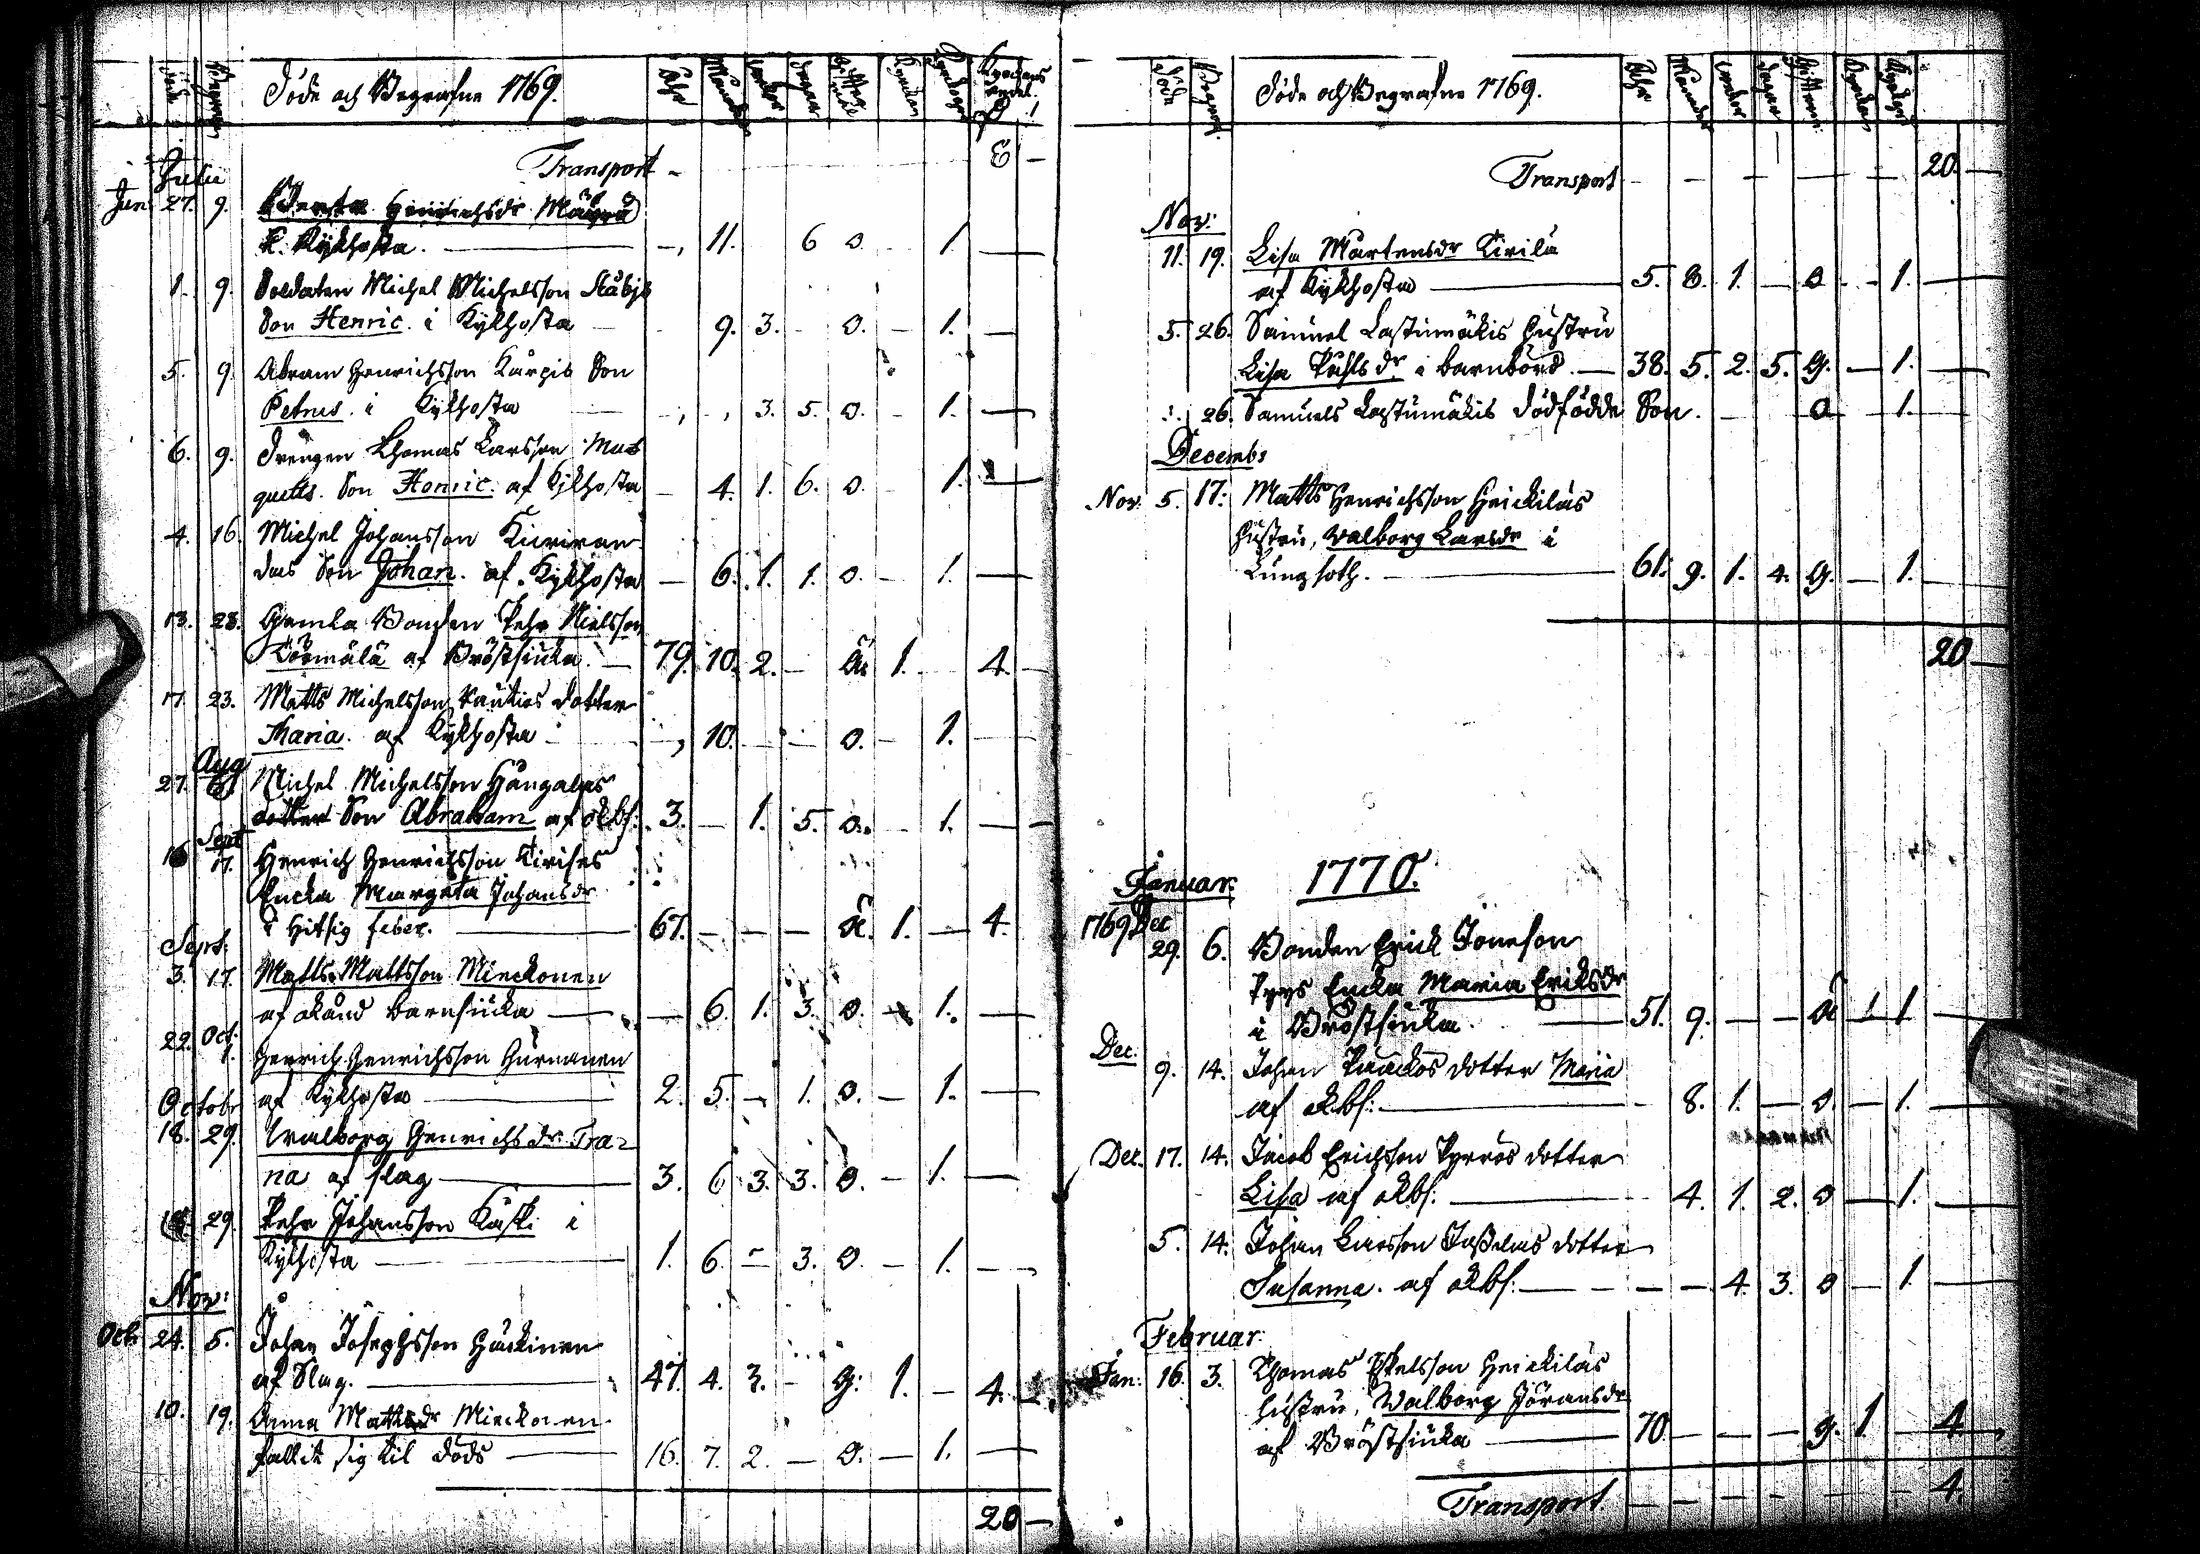 Döde och Begrafne 1769.
Transport - 8 -
Julii
Jun 27. 9. Berta Henrichsdr
Kykhosta. -, 11. 6 o. 1. -
1. 9. Soldaten Michel Michelsson
Son Henric i Kykhosta - 9. 3. - o. - 1. -
5. 9. Abram Henrichsson Karpis Son
Petrus i Kykhosta -, -, 3. 5. o. - 1. -
6. 9. Drengen Thomas Larsson Mus
quetts Son Henric af Kykhosta - 4. 1. 6. o. 1. -
4. 16. Michel Johansson
Son Johan. af Kykhosta - 6. 1. 1. o. - 1. -
13. 23. Gamla Bonden Pehr Nielsson
Törmälä af Bröstsiuka. - 79. 10. 2. - 1. 4. -
17. 23. Matts Michelsson Pautios dotter
Maria. af Kykhosta -, 10. - - o. - 1. -
Aug
27. 6 Michel Michelsson Hangalas
dotter Son Abraham af okbs: 3. - 1. 5. o. - 1. -
Sept
16 17. Henrich Henrichsson
Encka Margeta Johansdr
i Hitsig feber. 67. - - - 1. - 4.
Sept:
3. 17. Matts Mattsson Minckonen
af okänd barnsiuka - 6. 1. 3. o. 1. -
Oct:
22. 1. Henrich Henrichsson Hurnanen
af Kykhosta 2. 5. - 1. o. - 1. -
Octobr
18. 29. Walborg Henrichsdr Tra=
na af slag 3. 6 3. 3. o. - 1. -
18. 29. Pehr Johansson Kaski i
Kykhosta 1. 6. - 3. o. - 1. -
Nov:
Octb 24. 5. Johan Josephsson Hackinen
af Slag. 47. 4. 3. - g: 1. - 4. -
10. 19. Anna Mattsdr Minckonen
fallit sig til döds 16. 7. 2. - o. - 1. -
20 -
Döde och Begrafne 1769.
Transport - - - - - 20. -
Nov:
11. 19. Lisa Mårtensdr Kirilä
af Kykhosta 5. 8. 1. - o - 1. -
5. 26. Samuel Lastumäkis hustru
Lisa Påhlsdr i barnbörd. - 38. 5. 2. 5. g. - 1. -
26. Samuels Lastumäkis dödfödde Son. - o - 1.
Decemb:
Nov. 5. 17. Matts Henrichsson Heickiläs
hustru, Walborg Larsdr i
Lungsoth. 61. 9. 1. 4. g. - 1.
20 -
1770.
Januar:
1769 Dec
29. 6. Bonden Erick Jönsson
Pyys Encka Maria Eriksdr
i Bröstsiuka. 51. 9. - - 1 1 -
Dec. 9. 14. Johan Paackos dotter Maria
af okbs: - 8. 1. - o. - 1. -
Dec. 17. 14. Jacob Erichsson Pyrrös dotter
Lisa af okbs: 4. 1. 2. o - 1. -
5. 14. Johan Larsson dotter
Susanna. af okbs: - - 4. 3. o - 1. -
Februar:
Jan: 16. 3. Thomas Heickiläs
hustru, Walborg Göransdr
af Bröstsiuka 70. - - - g. 1. 4. -
Transport - - - - - - 4.